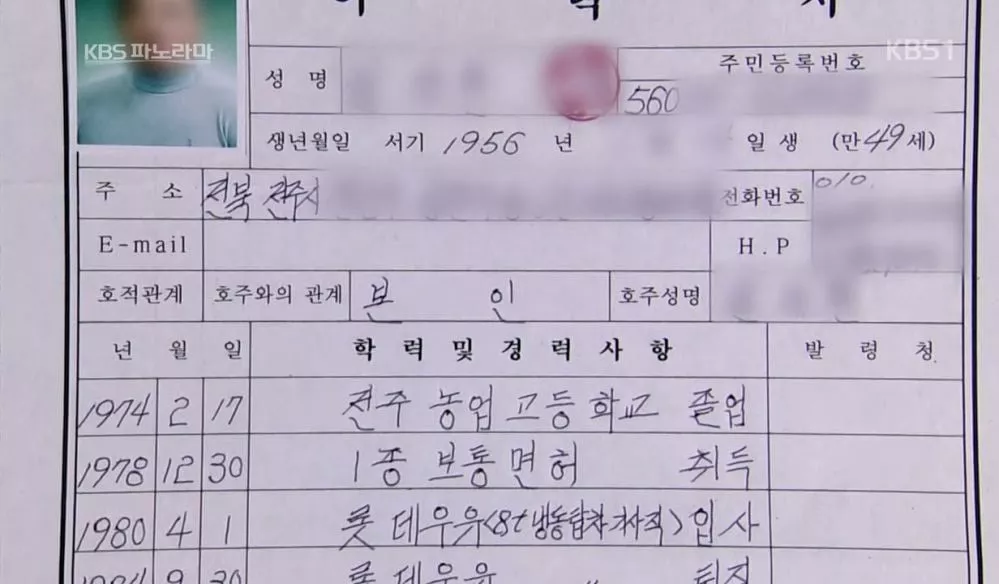 이 력 서
KBS 파노라마
KBS1
성 명
주민등록번호
560
생년월일 서기 1956 년 일 생 (만 49 세)
주 소 전북 전주시
전화번호 010
E-mail
H.P
호적관계 호주와의 관계 본 인 호주성명
년 월 일 학 력 및 경 력 사 항 발 령 청
1974 2 17 전주 농업 고등 학교 졸업
1978 12 30 1종 보통 면허 취득
1980 4 1 롯데우유(8t 냉동탑차 기사직) 입사
1984 9 30 롯데우유 〃 퇴직